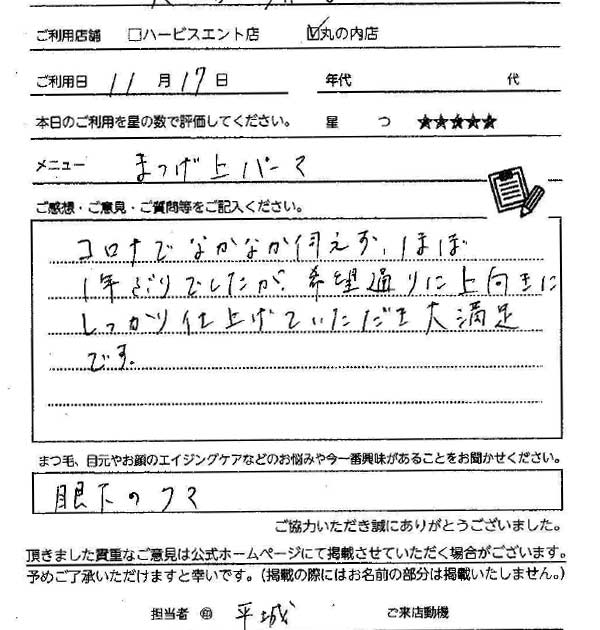 ご利用店舗 □ハービスエント店 ☑丸の内店
ご利用日 11月17日 年代 代
本日のご利用を星の数で評価してください。 星 つ ★★★★★
メニュー まつげ上パーマ
ご感想・ご意見・ご質問等をご記入ください。
コロナでなかなか伺えず、ほぼ
1年ぶりでしたが、希望通りに上向きに
しっかり仕上げていただき大満足
です。
まつ毛、目元やお顔のエイジングケアなどのお悩みや今一番興味があることをお聞かせください。
眼下のクマ
ご協力いただき誠にありがとうございました。
頂きました貴重なご意見は公式ホームページにて掲載させていただく場合がございます。
予めご了承いただけますと幸いです。（掲載の際にはお名前の部分は掲載いたしません。）
担当者 ㊞ 平城 ご来店動機